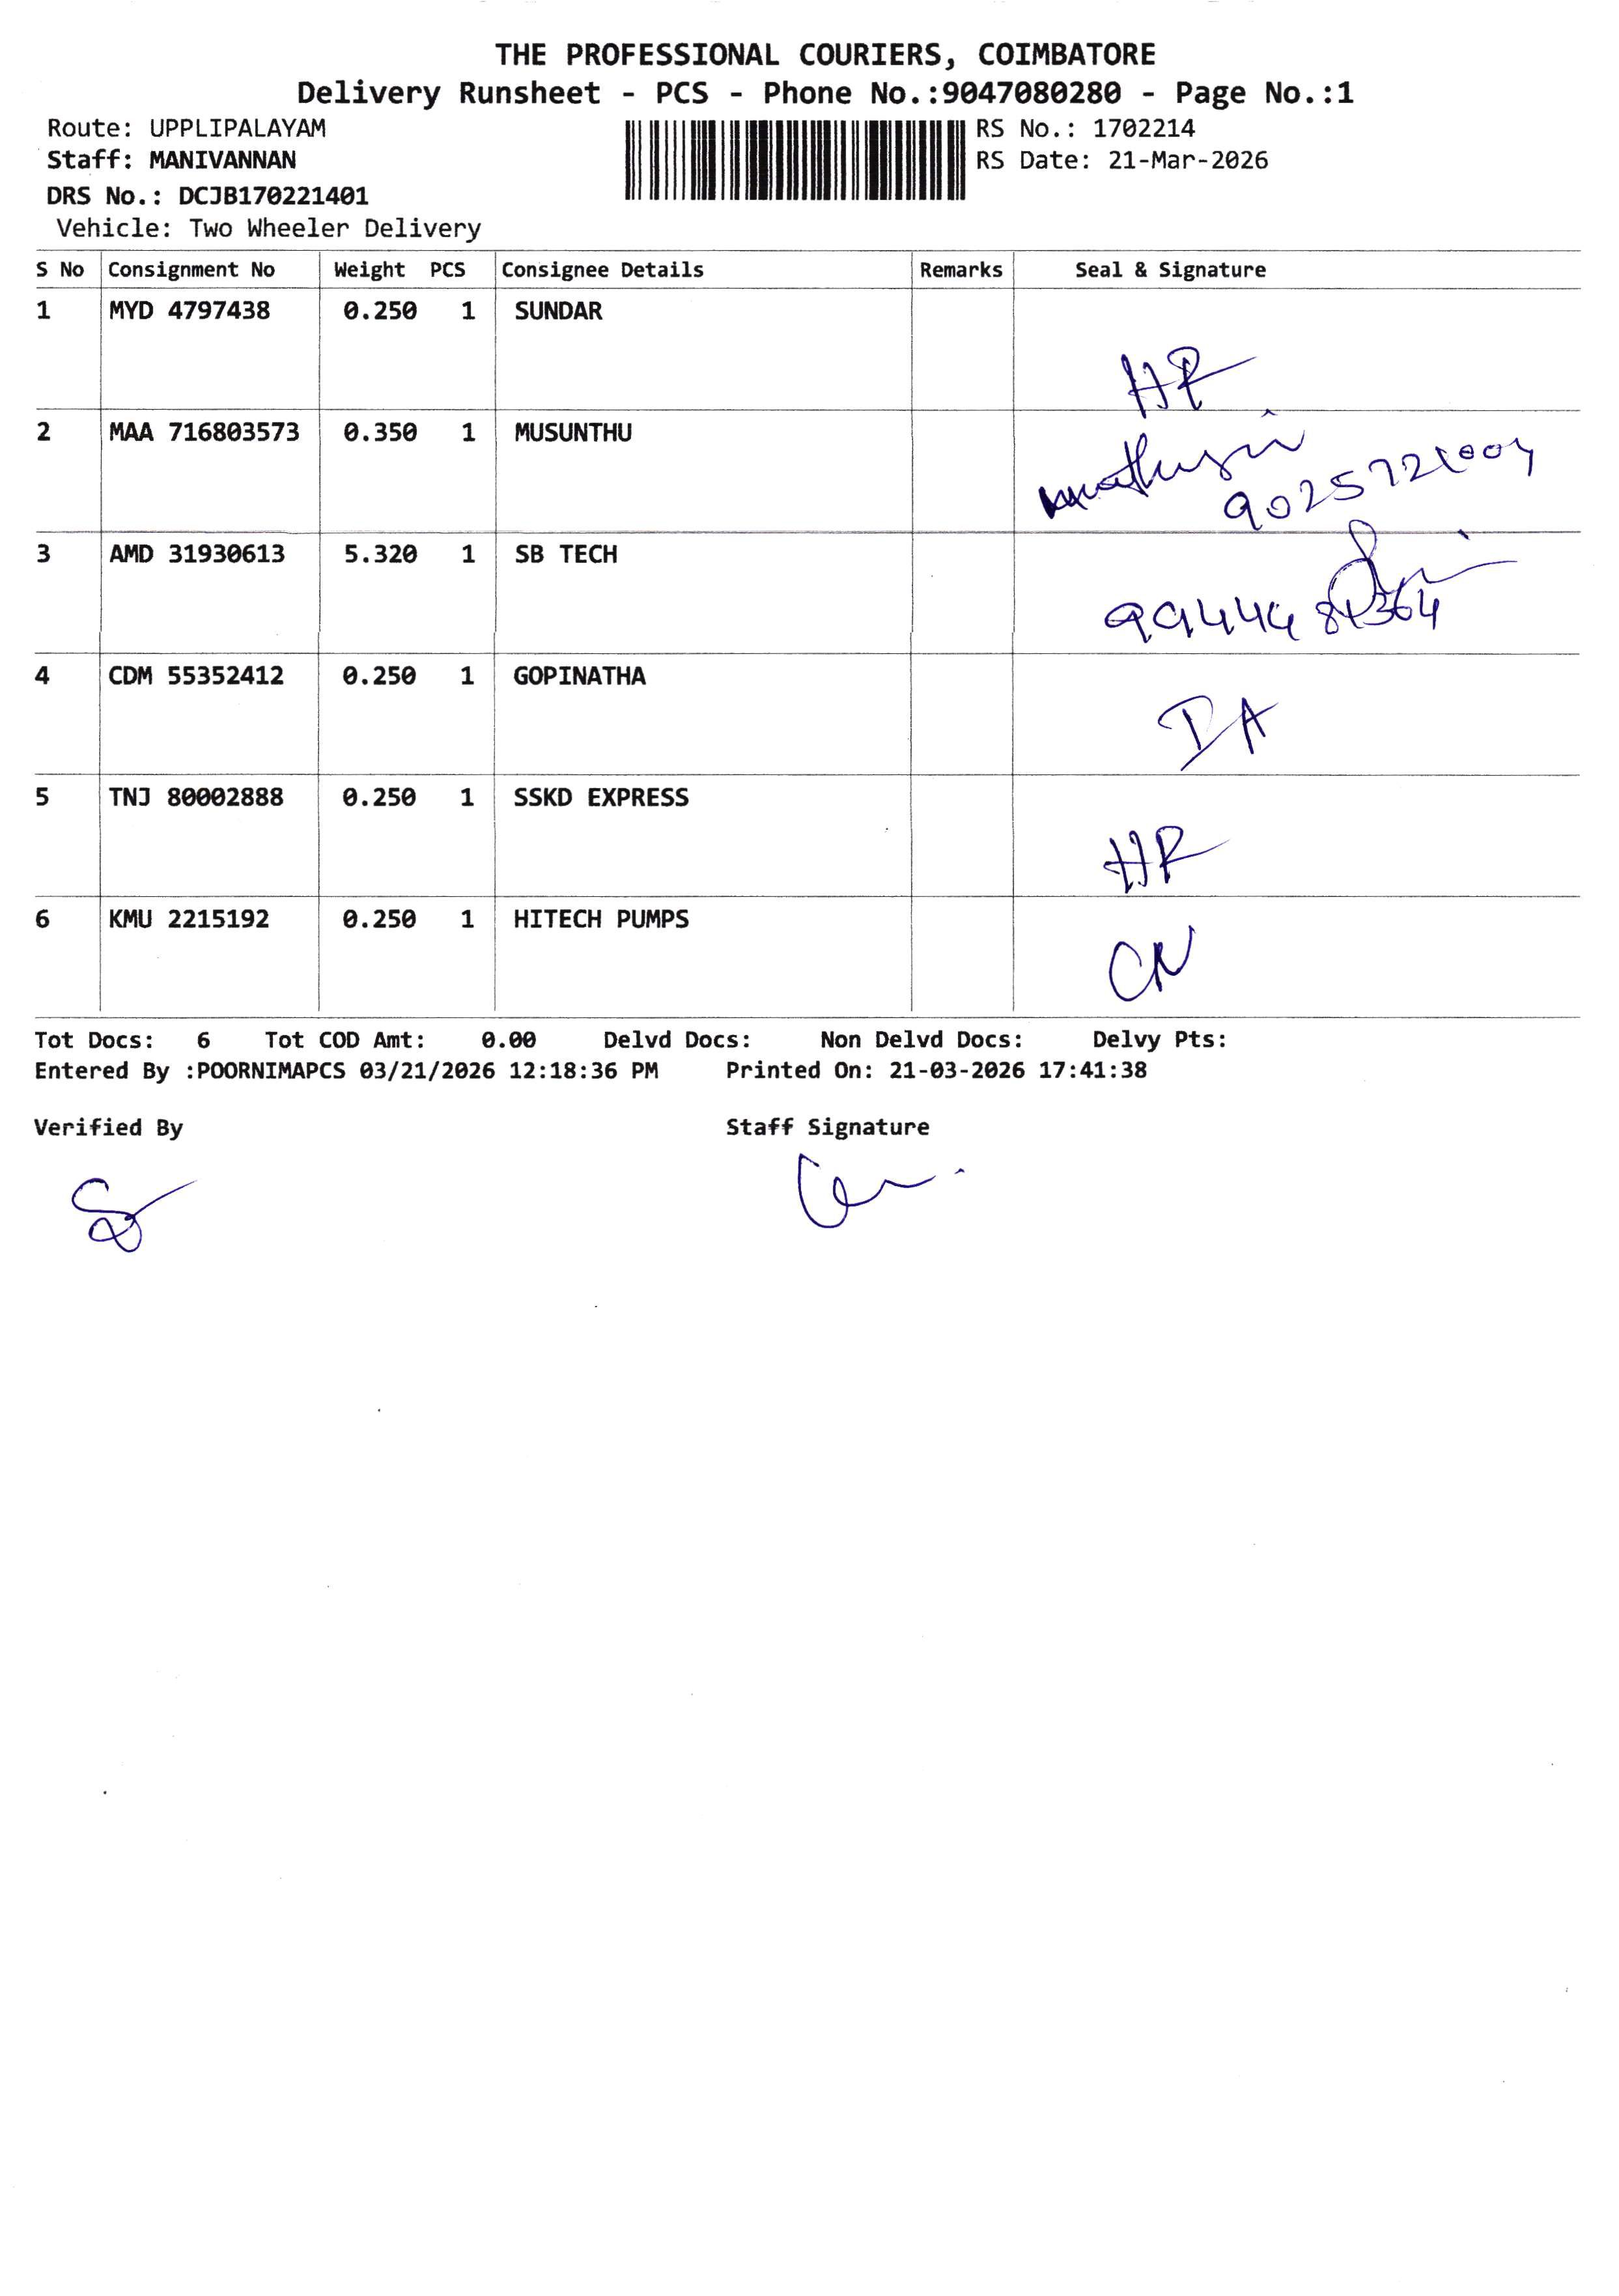 THE PROFESSIONAL COURIERS, COIMBATORE
Delivery Runsheet - PCS - Phone No.:9047080280 - Page No.:1
Route: UPPLIPALAYAM
RS No.: 1702214
Staff: MANIVANNAN
RS Date: 21-Mar-2026
DRS No.: DCJB170221401
Vehicle: Two Wheeler Delivery
S No Consignment No Weight PCS Consignee Details Remarks Seal & Signature
1 MYD 4797438 0.250 1 SUNDAR
HR
2 MAA 716803573 0.350 1 MUSUNTHU
3 AMD 31930613 5.320 1 SB TECH
4 CDM 55352412 0.250 1 GOPINATHA
DA
5 TNJ 80002888 0.250 1 SSKD EXPRESS
HR
6 KMU 2215192 0.250 1 HITECH PUMPS
CN
Tot Docs: 6 Tot COD Amt: 0.00 Delvd Docs: Non Delvd Docs: Delvy Pts:
Entered By :POORNIMAPCS 03/21/2026 12:18:36 PM Printed On: 21-03-2026 17:41:38
Verified By Staff Signature